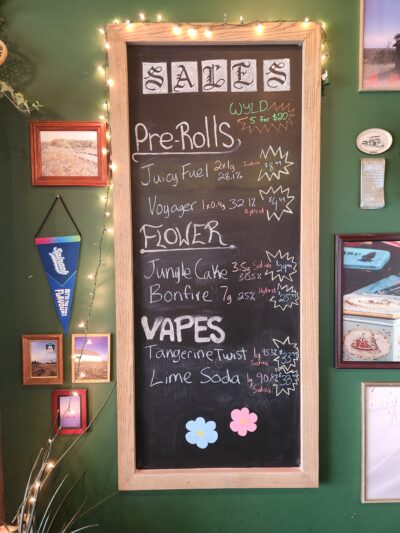 SALES
WYLD
5 for $20
Pre-Rolls
Juicy Fuel 2x1g 28.1% Indica
Voyager 1x0.4g 32.1% Hybrid
FLOWER
Jungle Cake 3.5g Sativa
Bonfire 7g 25% Hybrid
VAPES
Tangerine Twist 1g Sativa
Lime Soda 1g 90.8% Sativa